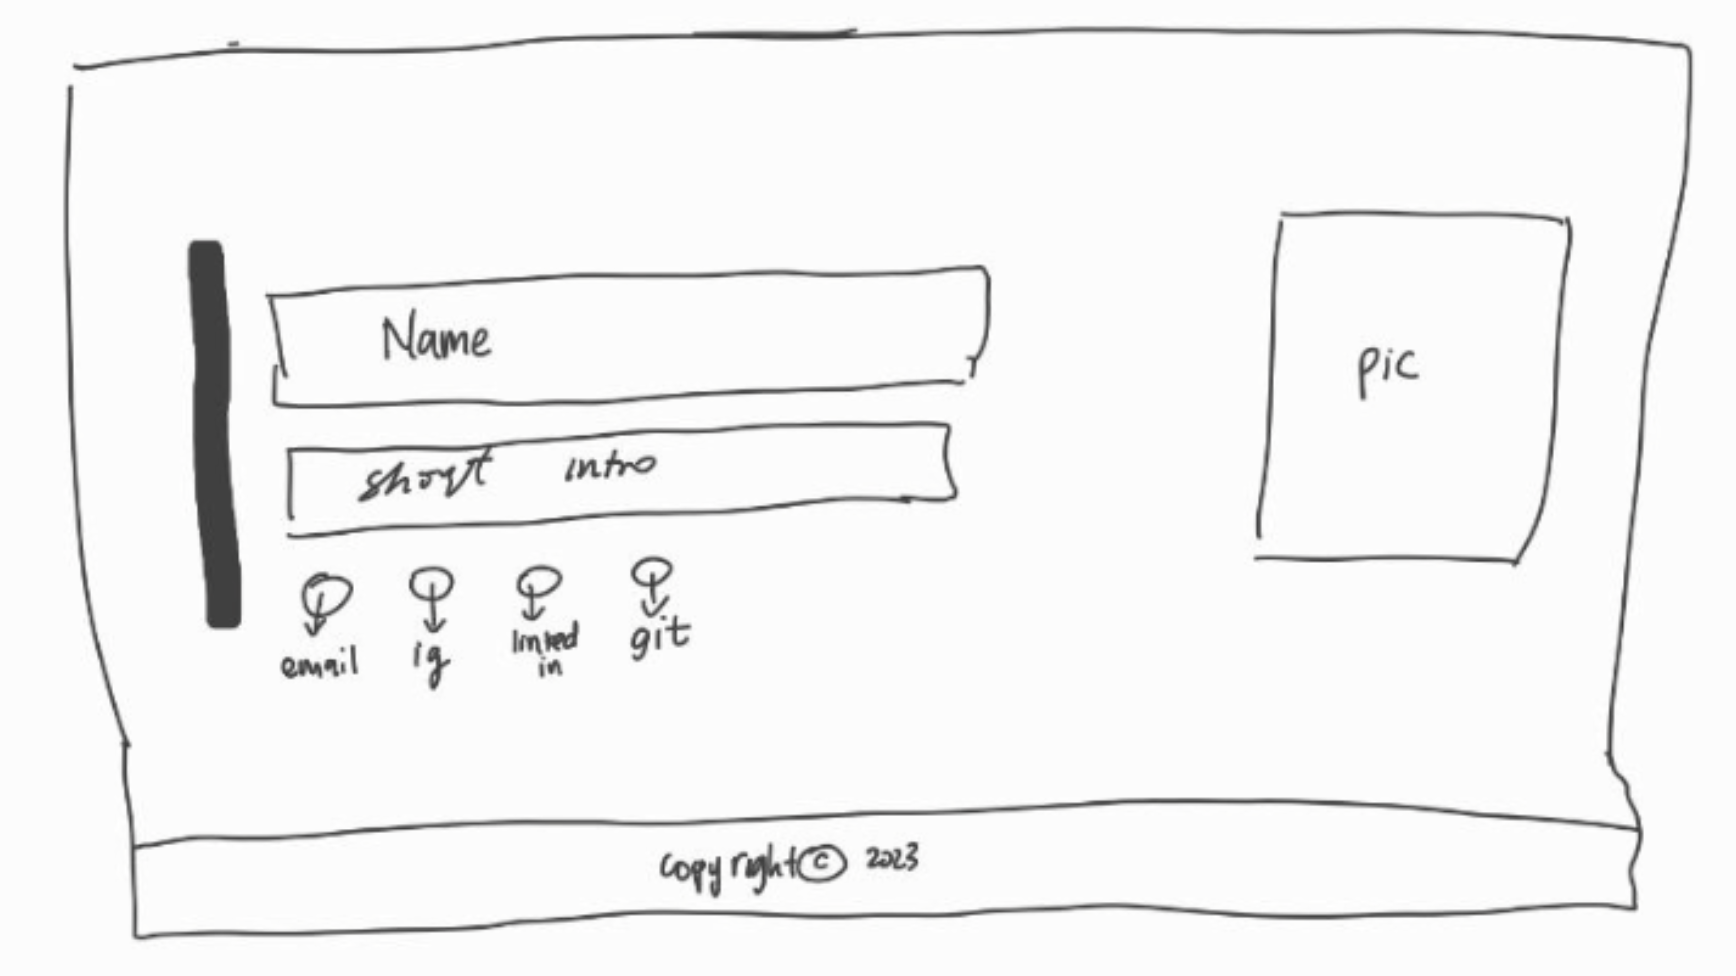 Name
pic
short intro
email
ig
linked
in
git
copyright © 2023